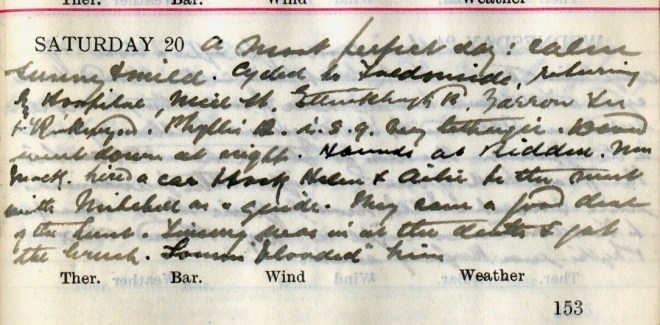 Ther. Bar. Wind Weather
SATURDAY 20 A most perfect day: calm
sunny & mild. Cycled to Faldonside, returning
by Hospital, Mill St. Ettrickhaugh Rd, Yarrow
Phyllis is. v. s. g. very lethargic. Wind
went down at night. Hounds at Riddell. Mrs
Mack. hired a car Helen & to the meet
with Mitchell as a guide. They saw a good deal
of the hunt. was in at the death & got
the brush. "blooded" him
Ther. Bar. Wind Weather
153